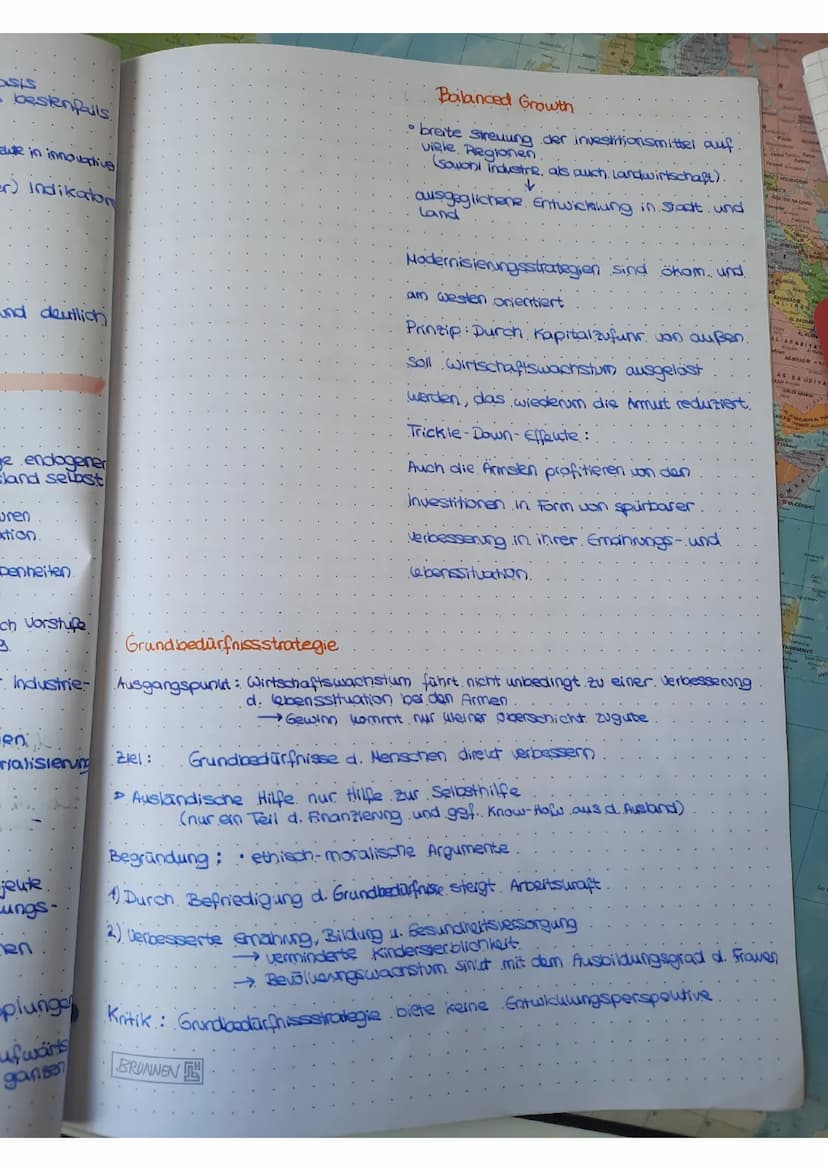 asis
bestenfalls
in innovative
er) Indikator
und deutlich
ge endogener
sland selbst
uren
ktion
benheiten
ch Vorstufe
g
Industrie-
en
rialisierung
jeute
ungs-
nen
plunge
ufwärts
ganzen
Balanced Growth
• breite Streuung der Investitionsmittel auf
viele Regionen
(sowohl Industrie, als auch Landwirtschaft)
↓
ausgeglichene Entwicklung in Stadt und
Land
Modernisierungsstrategien sind ökom. und
am Westen orientiert
Prinzip: Durch Kapitalzufuhr von außen
soll Wirtschaftswachstum ausgelöst
werden, das wiederum die Armut reduziert.
Trickle-Down-Effekte:
Auch die Ärmsten profitieren von den
Investitionen in Form von spürbarer
Verbesserung in ihrer Ernährungs- und
Lebenssituation.
Grundbedürfnissstrategie
Ausgangspunkt: Wirtschaftswachstum führt nicht unbedingt zu einer Verbesserung
d. Lebenssituation bei den Armen
→ Gewinn kommt nur kleiner Oberschicht zugute
Ziel: Grundbedürfnisse d. Menschen direkt verbessern
▷ Ausländische Hilfe nur Hilfe zur Selbsthilfe
(nur ein Teil d. Finanzierung und ggf. Know-How aus d. Ausland)
Begründung: • ethisch-moralische Argumente
1) Durch Befriedigung d. Grundbedürfnisse steigt Arbeitskraft
2) Verbesserte Ernährung, Bildung u. Gesundheitsversorgung
→ verminderte Kindersterblichkeit
→ Bevölkerungswachstum sinkt mit dem Ausbildungsgrad d. Frauen
Kritik: Grundbedürfnissstrategie biete keine Entwicklungsperspektive
BRUNNEN